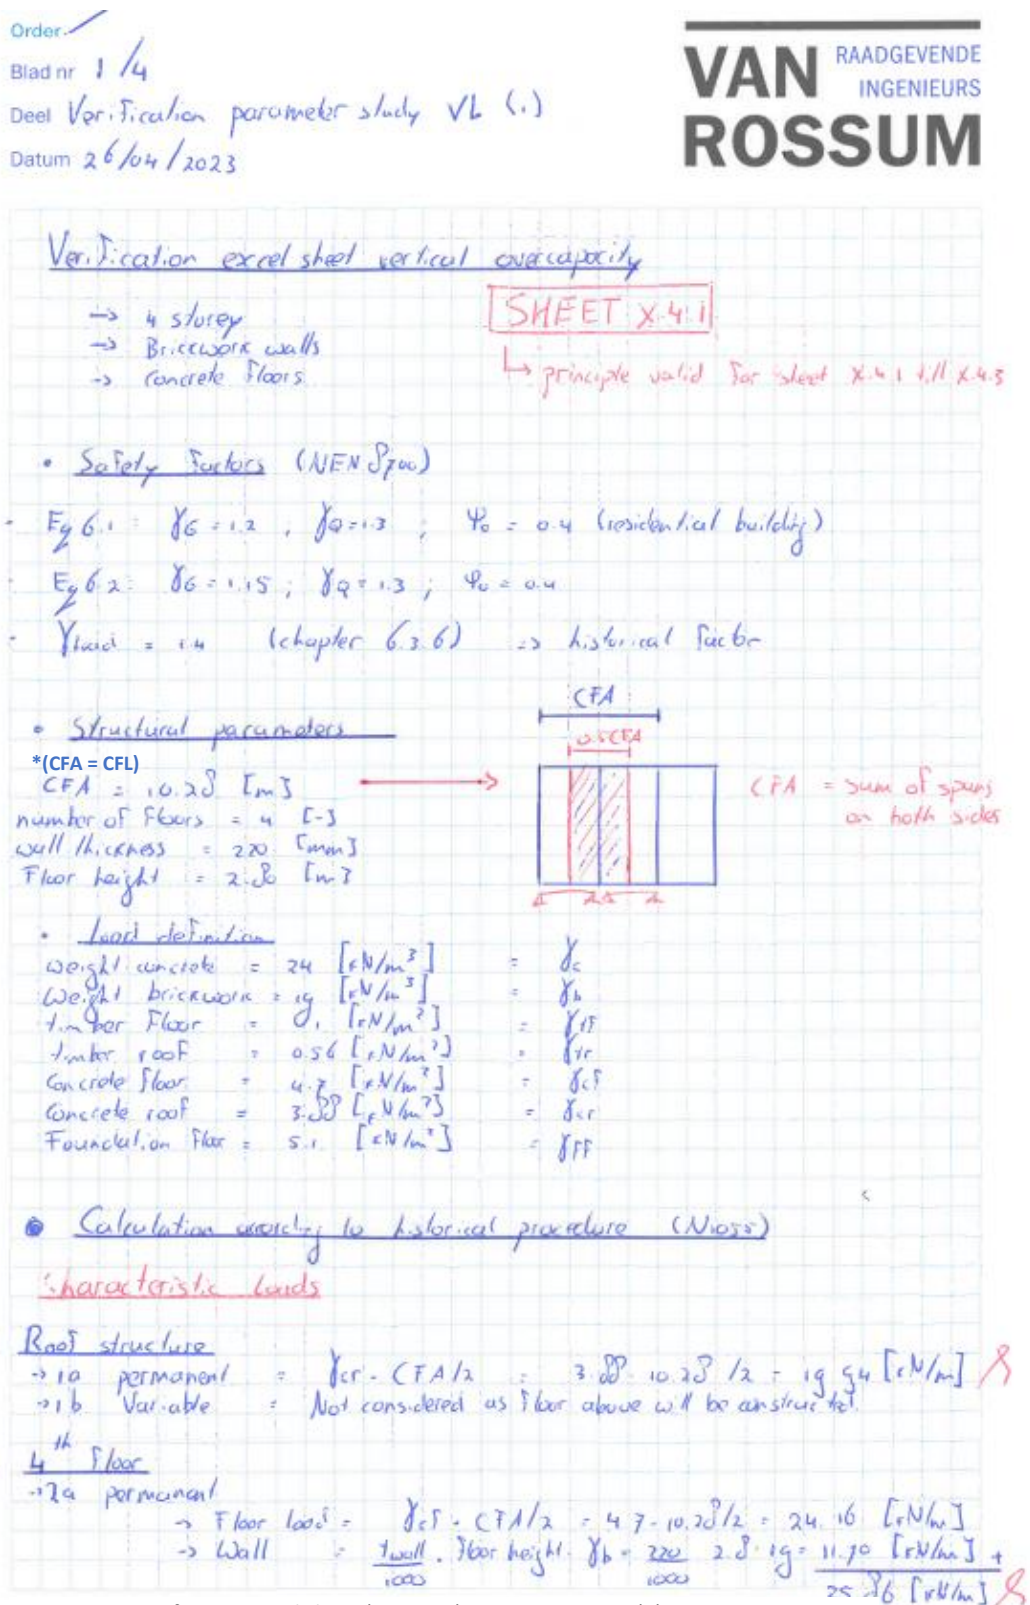 Order.
Blad nr 1/4
Deel Verification parameter study VL (.)
Datum 26/04/2023
VAN ROSSUM
RAADGEVENDE
INGENIEURS
Verification excel sheet vertical overcapacity
-> 4 storey
-> Brickwork walls
-> Concrete floors
SHEET X.4.1
↳ principle valid for sheet X.4.1 till X.4.3
• Safety factors (NEN 8700)
- Eq 6.1: γG = 1.2 , γQ = 1.3 ; Ψ0 = 0.4 (residential building)
- Eq 6.2: γG = 1.15 ; γQ = 1.3 ; Ψ0 = 0.4
- = 1.4 (chapter 6.3.6) -> historical factor
• Structural parameters
*(CFA = CFL)
CFA = 10.28 [m]
number of floors = 4 [-]
wall thickness = 220 [mm]
Floor height = 2.80 [m]
CFA
0.5CFA
CFA = sum of spans
on both sides
• Load definition
weight concrete = 24 [kN/m³] = γc
Weight brickwork = 19 [kN/m³] = γb
timber Floor = [kN/m²] = γtf
timber roof = 0.56 [kN/m²] = γtr
Concrete floor = 4.7 [kN/m²] = γcf
Concrete roof = 3.88 [kN/m²] = γcr
Foundation floor = 5.1 [kN/m²] = γff
• Calculation according to historical procedure (N1055)
Characteristic loads
Roof structure
-> 1a permanent = γcr · CFA/2 = 3.88 · 10.28 /2 = 19.94 [kN/m]
-> 1b Variable = Not considered as floor above will be constructed.
4th Floor
-> 2a permanent
-> Floor load = γcf · CFA/2 = 4.7 · 10.28/2 = 24.16 [kN/m]
-> Wall = twall/1000 · floor height · γb = 220/1000 · 2.8 · 19 = 11.70 [kN/m] +
[kN/m]